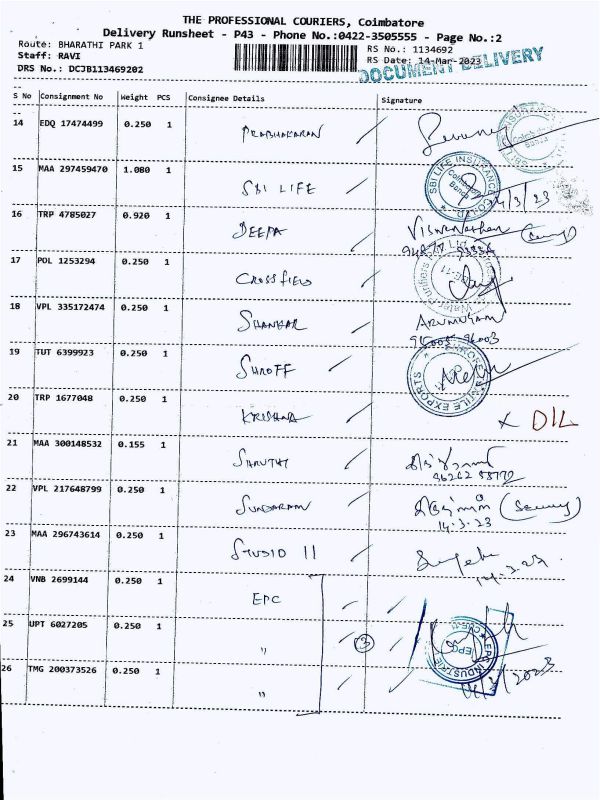 THE PROFESSIONAL COURIERS, Coimbatore
Delivery Runsheet - P43 - Phone No.:0422-3505555 - Page No.:2
Route: BHARATHI PARK 1
Staff: RAVI
DRS No.: DCJB113469202
RS No.: 1134692
RS Date: 14-Mar-2023
DOCUMENT DELIVERY
S No Consignment No Weight PCS Consignee Details Signature
14 EDQ 17474499 0.250 1 PRABHAKARAN
15 MAA 297459470 1.080 1 SBI LIFE
SBI LIFE INSURANCE CO
14/3/23
16 TRP 4785027 0.920 1 DEEPA Viswanathan
17 POL 1253294 0.250 1 CROSSFIELD
18 VPL 335172474 0.250 1 SHANKAR ARUMUGAM
19 TUT 6399923 0.250 1 SHROFF
20 TRP 1677048 0.250 1 KRISHNA X D/L
21 MAA 300148532 0.155 1 SHRUTHI
96262 58772
22 VPL 217648799 0.250 1 SUNDARAM
14.3.23
23 MAA 296743614 0.250 1 STUDIO 11
14.3.23
24 VNB 2699144 0.250 1 EPC
25 UPT 6027205 0.250 1 " 3
26 TMG 200373526 0.250 1 "